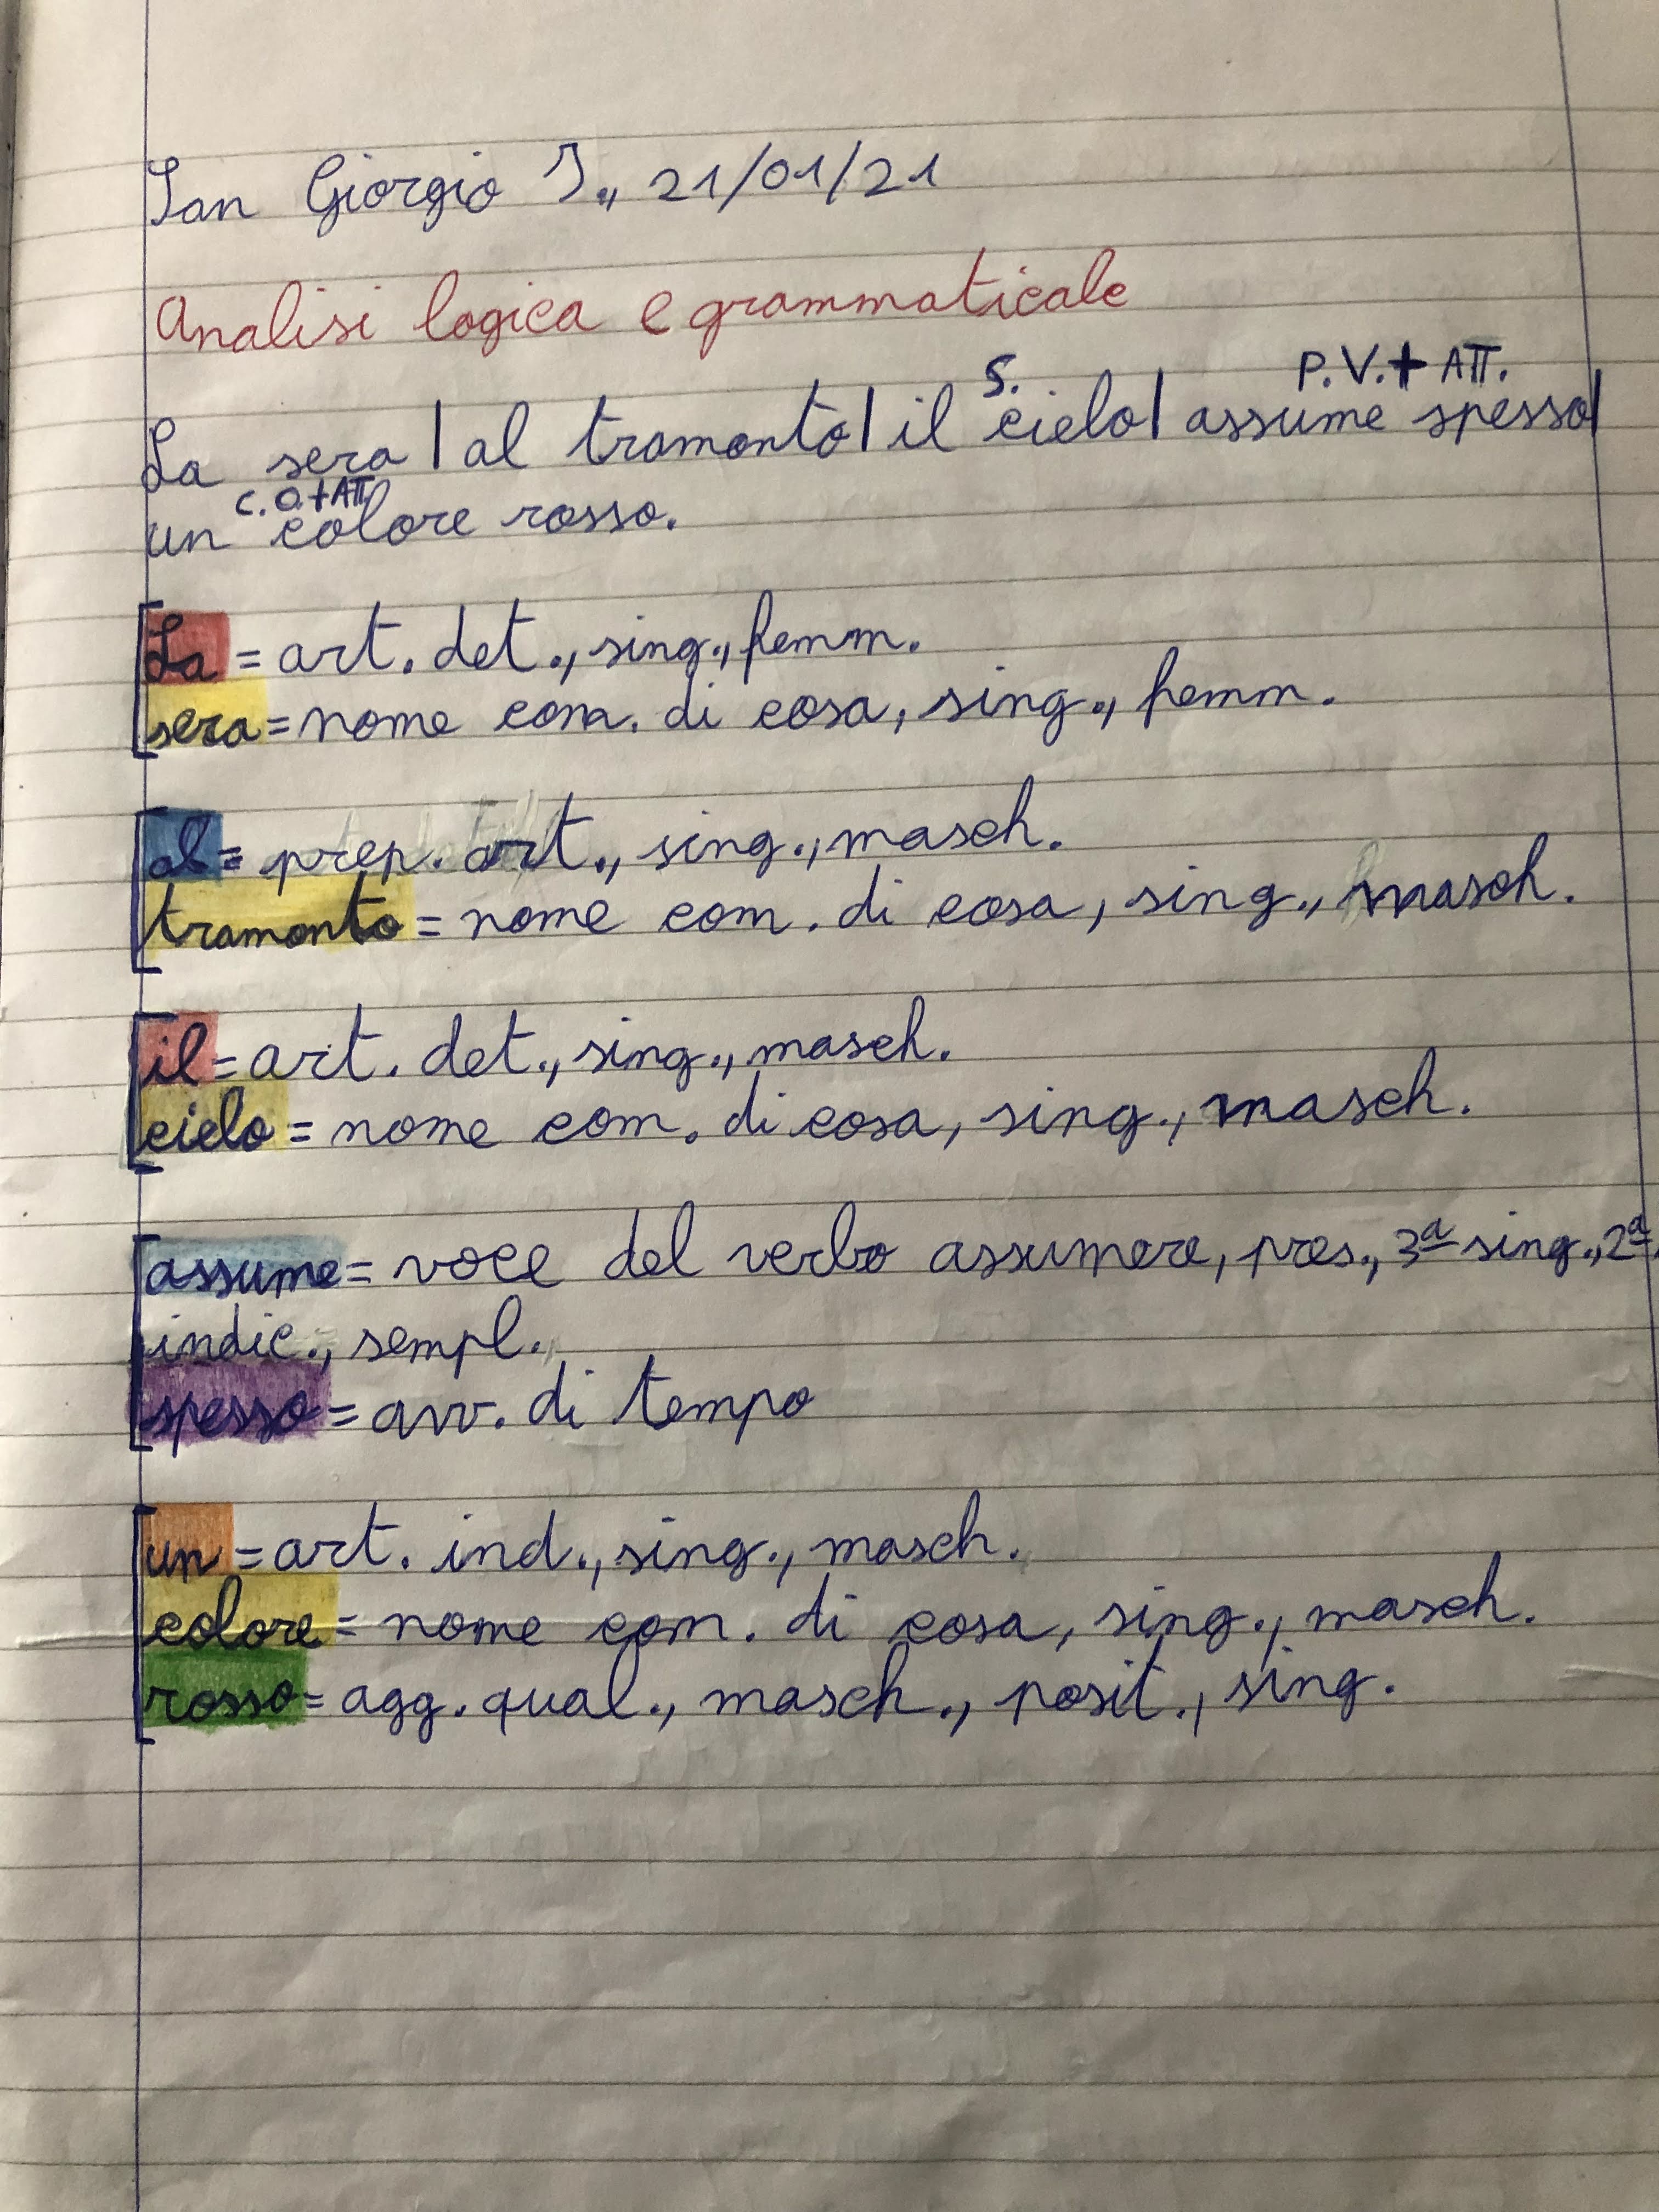 San Giorgio J., 21/01/21
Analisi logica e grammaticale
S. P.V.+ ATT.
La sera | al tramonto | il cielo | assume spesso |
C.O.+ATT
un colore rosso.
La = art. det., sing., femm.
sera = nome com. di cosa, sing., femm.
al = prep. art., sing., masch.
tramonto = nome com. di cosa, sing., masch.
il = art. det., sing., masch.
cielo = nome com. di cosa, sing., masch.
assume = voce del verbo assumere, pres., 3ª sing., 2ª
indic., sempl.
spesso = avv. di tempo
un = art. ind., sing., masch.
colore = nome com. di cosa, sing., masch.
rosso = agg. qual., masch., posit., sing.